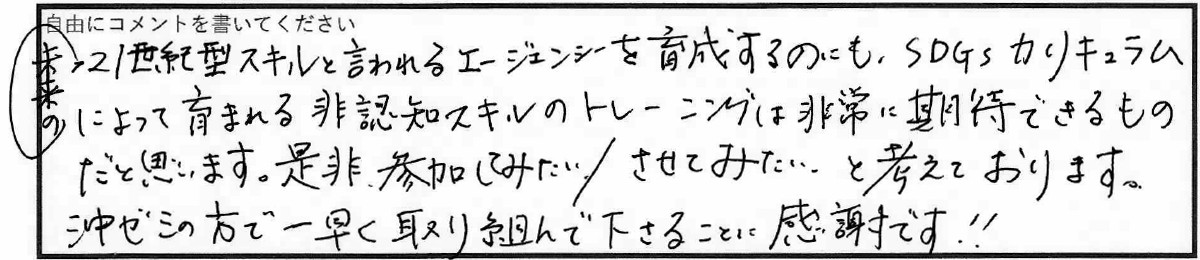 自由にコメントを書いてください
未来の
21世紀型スキルと言われるエージェンシーを育成するのにも、SDGsカリキュラム
によって育まれる非認知スキルのトレーニングは非常に期待できるもの
だと思います。是非、参加してみたい/させてみたい と考えております。
沖ゼミの方で一早く取り組んで下さることに感謝です!!